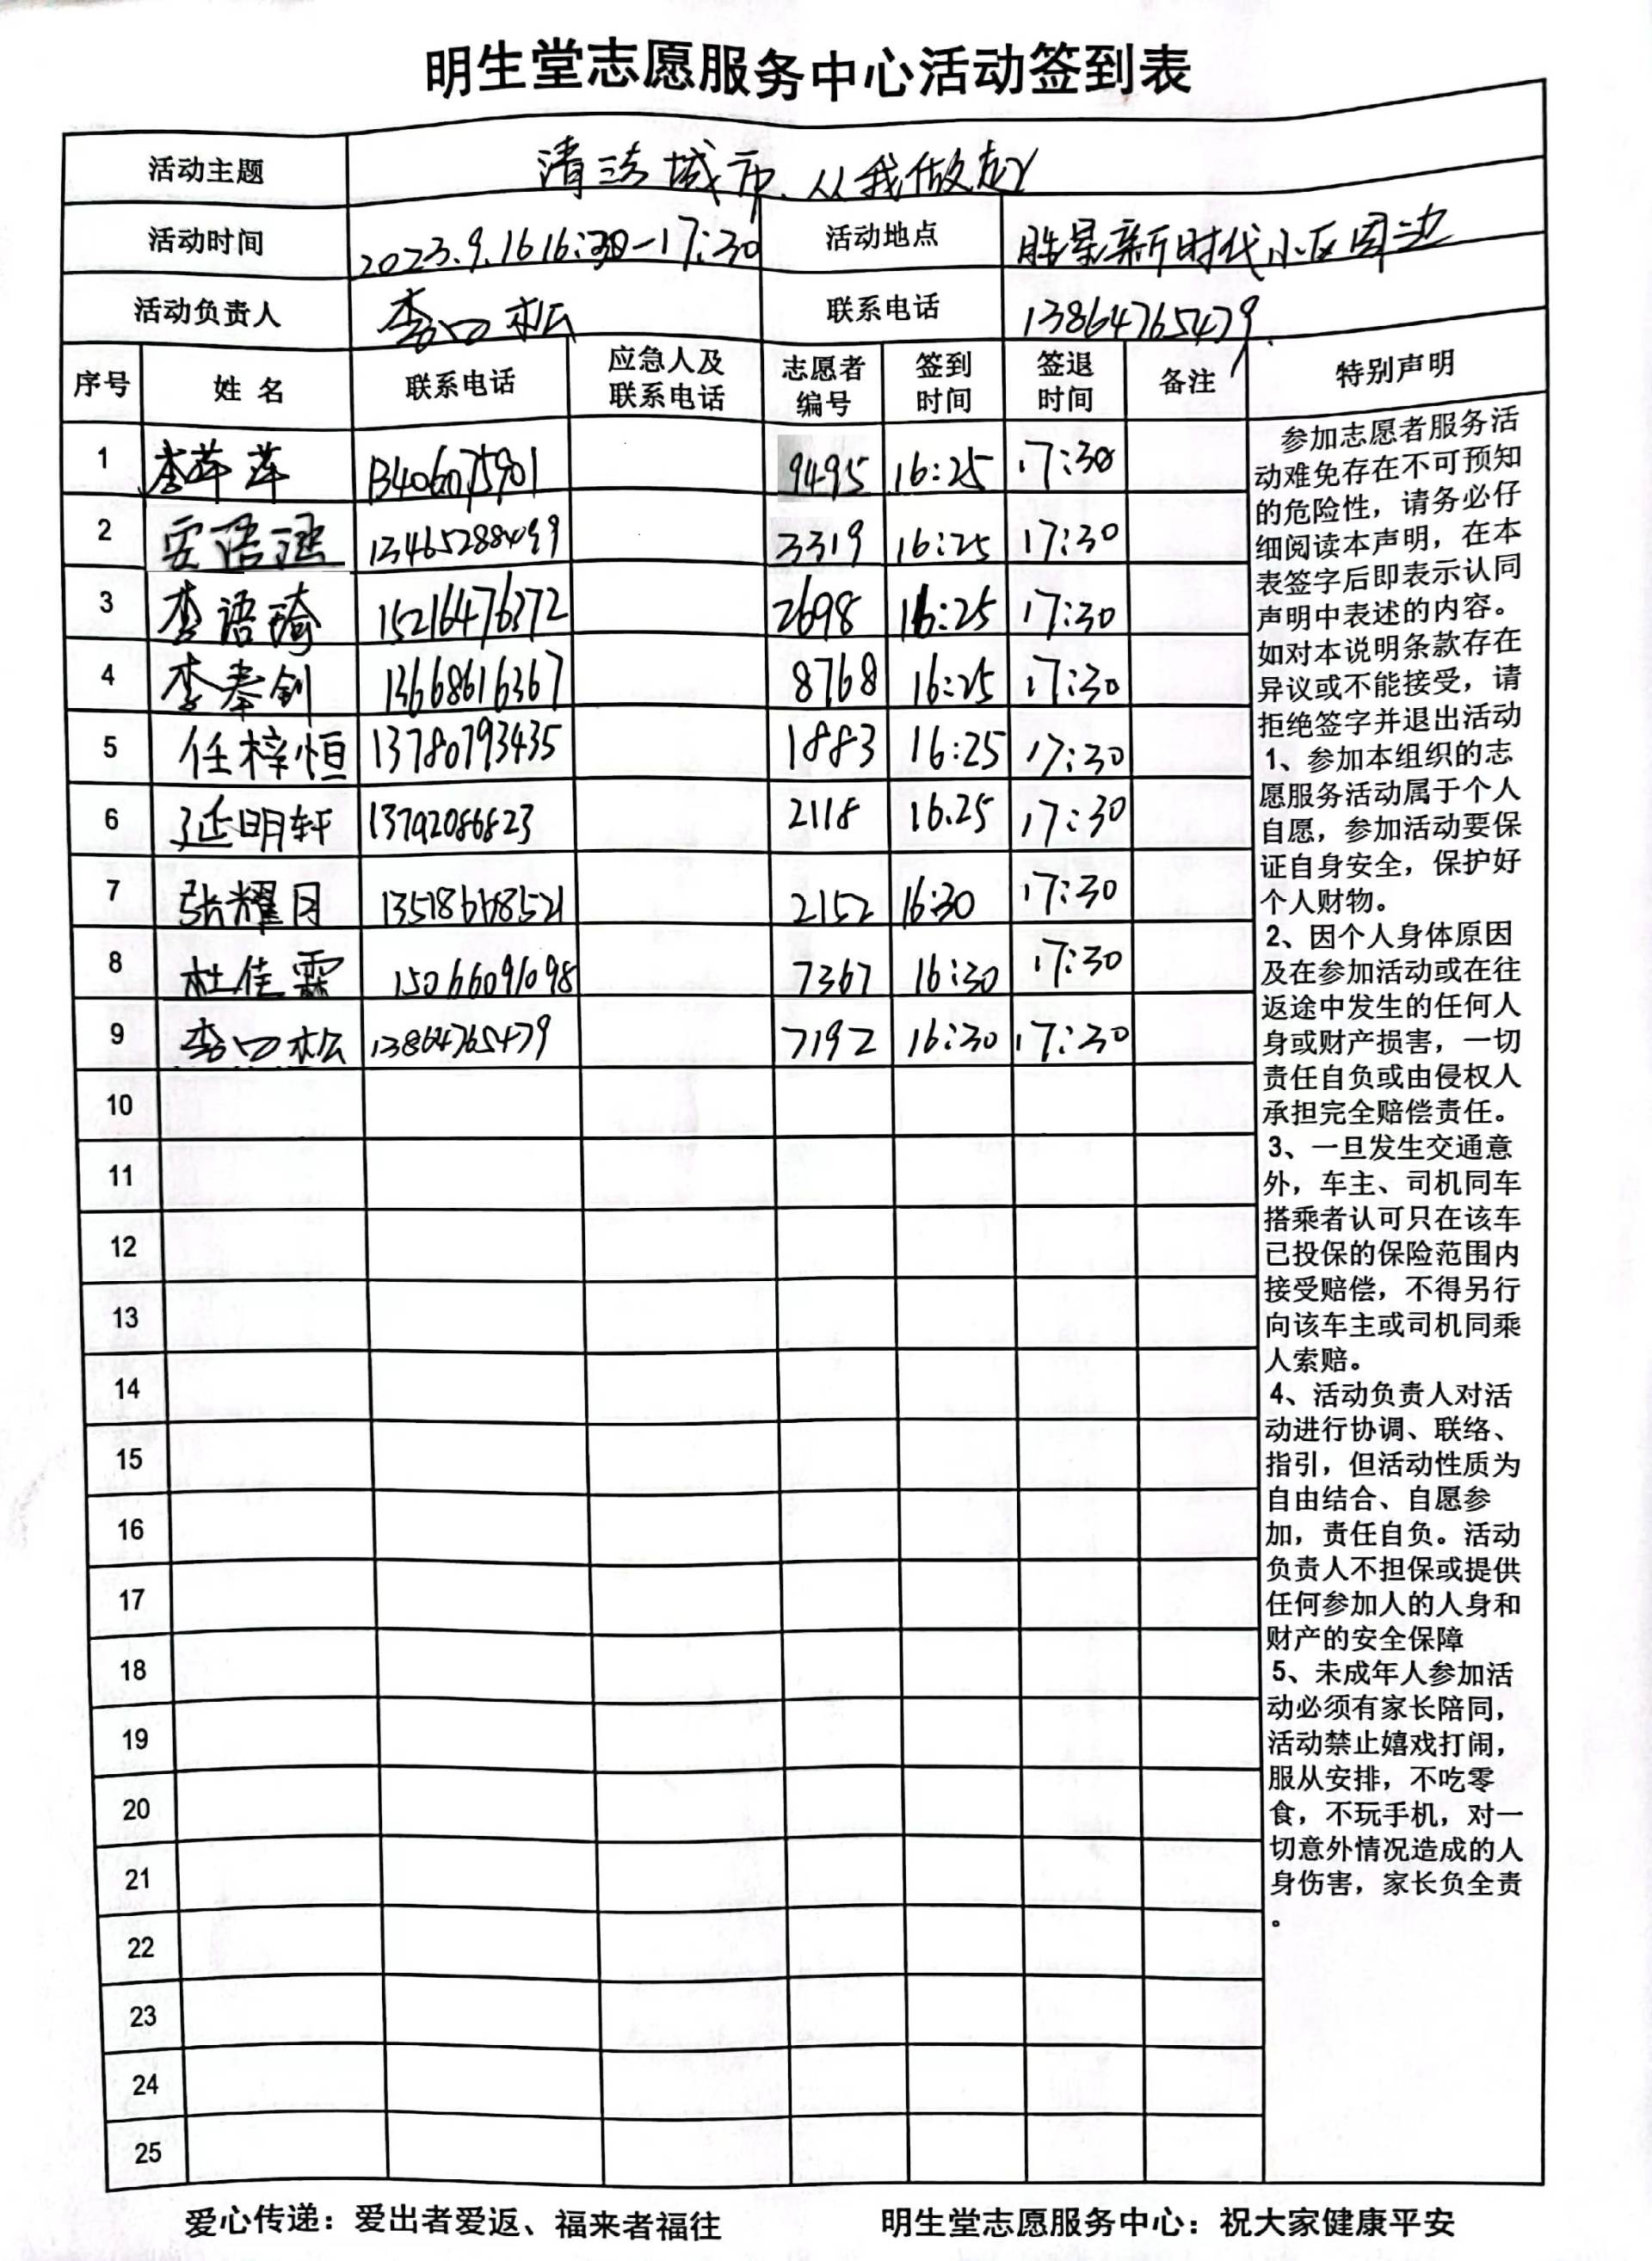 明生堂志愿服务中心活动签到表
活动主题 清洁城市、从我做起
活动时间 2023.9.16 16:30-17:30 活动地点 胜景新时代小区周边
活动负责人 李口松 联系电话 13864765479
序号 姓名 联系电话 应急人及联系电话 志愿者编号 签到时间 签退时间 备注 特别声明
1 李萍萍 13406075901 9495 16:25 17:30
2 安语涵 13465288499 3319 16:25 17:30
3 李语琦 15216476372 2698 16:25 17:30
4 李奉钊 13668616367 8768 16:25 17:30
5 任梓恒 13780793435 1883 16:25 17:30
6 延明轩 13792086823 2118 16.25 17:30
7 张耀月 13518668521 2152 16:30 17:30
8 杜佳霖 15066091098 7367 16:30 17:30
9 李口松 13864765479 7192 16:30 17:30
10
11
12
13
14
15
16
17
18
19
20
21
22
23
24
25
参加志愿者服务活
动难免存在不可预知
的危险性，请务必仔
细阅读本声明，在本
表签字后即表示认同
声明中表述的内容。
如对本说明条款存在
异议或不能接受，请
拒绝签字并退出活动
1、参加本组织的志
愿服务活动属于个人
自愿，参加活动要保
证自身安全，保护好
个人财物。
2、因个人身体原因
及在参加活动或在往
返途中发生的任何人
身或财产损害，一切
责任自负或由侵权人
承担完全赔偿责任。
3、一旦发生交通意
外，车主、司机同车
搭乘者认可只在该车
已投保的保险范围内
接受赔偿，不得另行
向该车主或司机同乘
人索赔。
4、活动负责人对活
动进行协调、联络、
指引，但活动性质为
自由结合、自愿参
加，责任自负。活动
负责人不担保或提供
任何参加人的人身和
财产的安全保障
5、未成年人参加活
动必须有家长陪同，
活动禁止嬉戏打闹，
服从安排，不吃零
食，不玩手机，对一
切意外情况造成的人
身伤害，家长负全责
。
爱心传递：爱出者爱返、福来者福往 明生堂志愿服务中心：祝大家健康平安